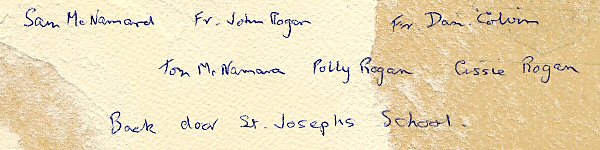 Sam McNamard Fr. John Rogan Fr. Dan. Colvin
Tom McNamara Polly Rogan Cissie Rogan
Back door St. Josephs School.